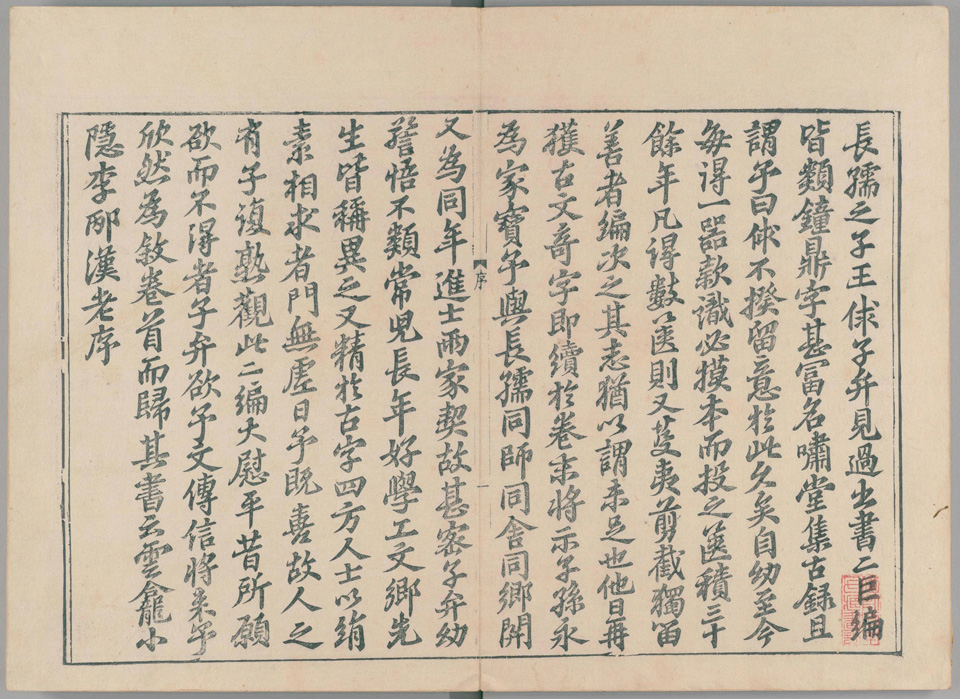 長孺之子王俅子弁見過出書二巨編
皆類鐘鼎字甚富名嘯堂集古録且
謂予曰俅不揆留意於此久矣自幼至今
每得一器款識必摸本而投之篋積三十
餘年凡得數篋則又芟夷剪截獨留
善者編次之其志猶以謂未足也他日再
獲古文奇字即續於卷末将示子孫永
為家寶予與長孺同師同舍同鄉閈
又為同年進士兩家契故甚密子弁幼
警悟不類常兒長年好學工文鄉先
生皆稱異之又精於古字四方人士以絹
素相求者門無虚日予既喜故人之
有子復熟觀此二編大慰平昔所願
欲而不得者子弁欲予文傳信将来予
欣然為敘卷首而歸其書云雲龕小
隱李邴漢老序
序
一